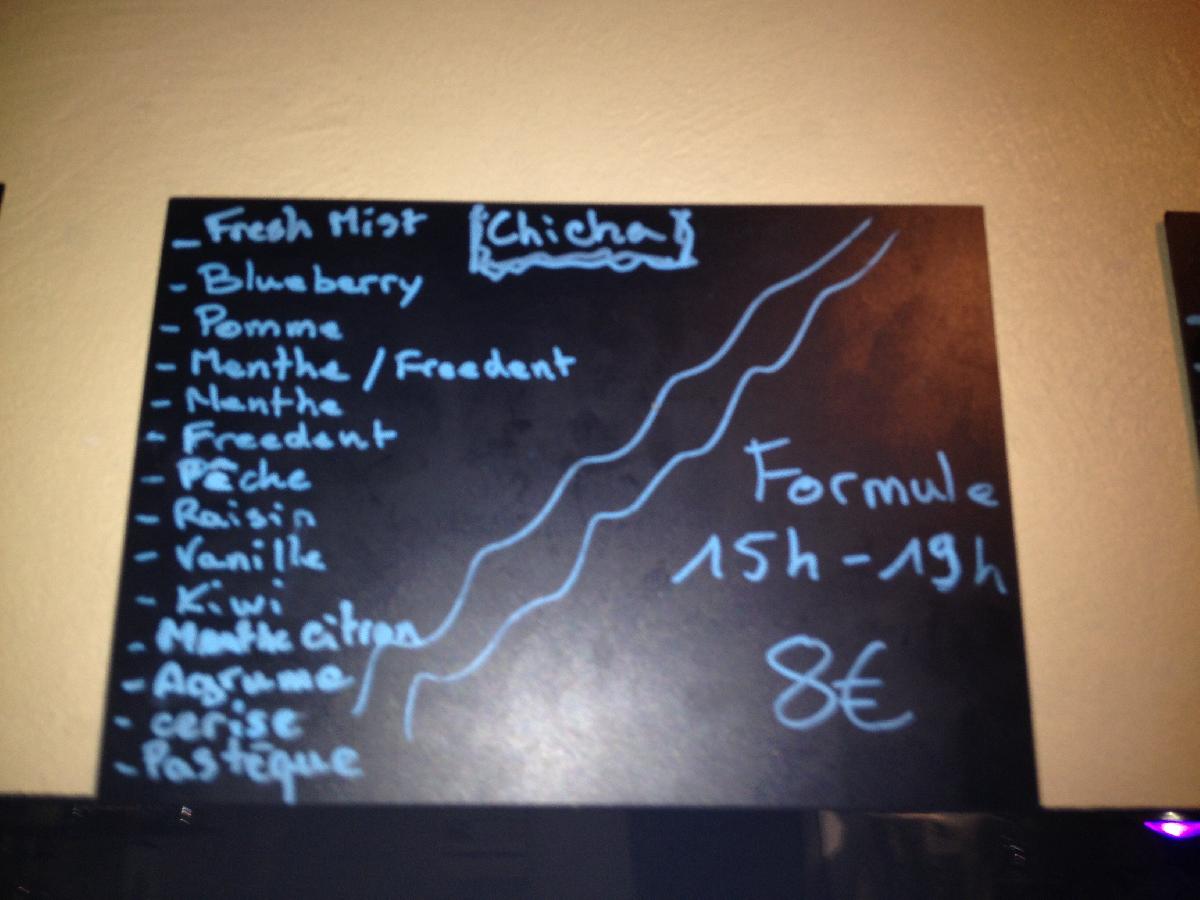 - Fresh Mist
[Chicha]
- Blueberry
- Pomme
- Menthe / Freedent
- Menthe
- Freedent
- Pêche
- Raisin
- Vanille
- Kiwi
- Menthe citron
- Agrume
- cerise
- Pastèque
Formule
15h - 19h
8€